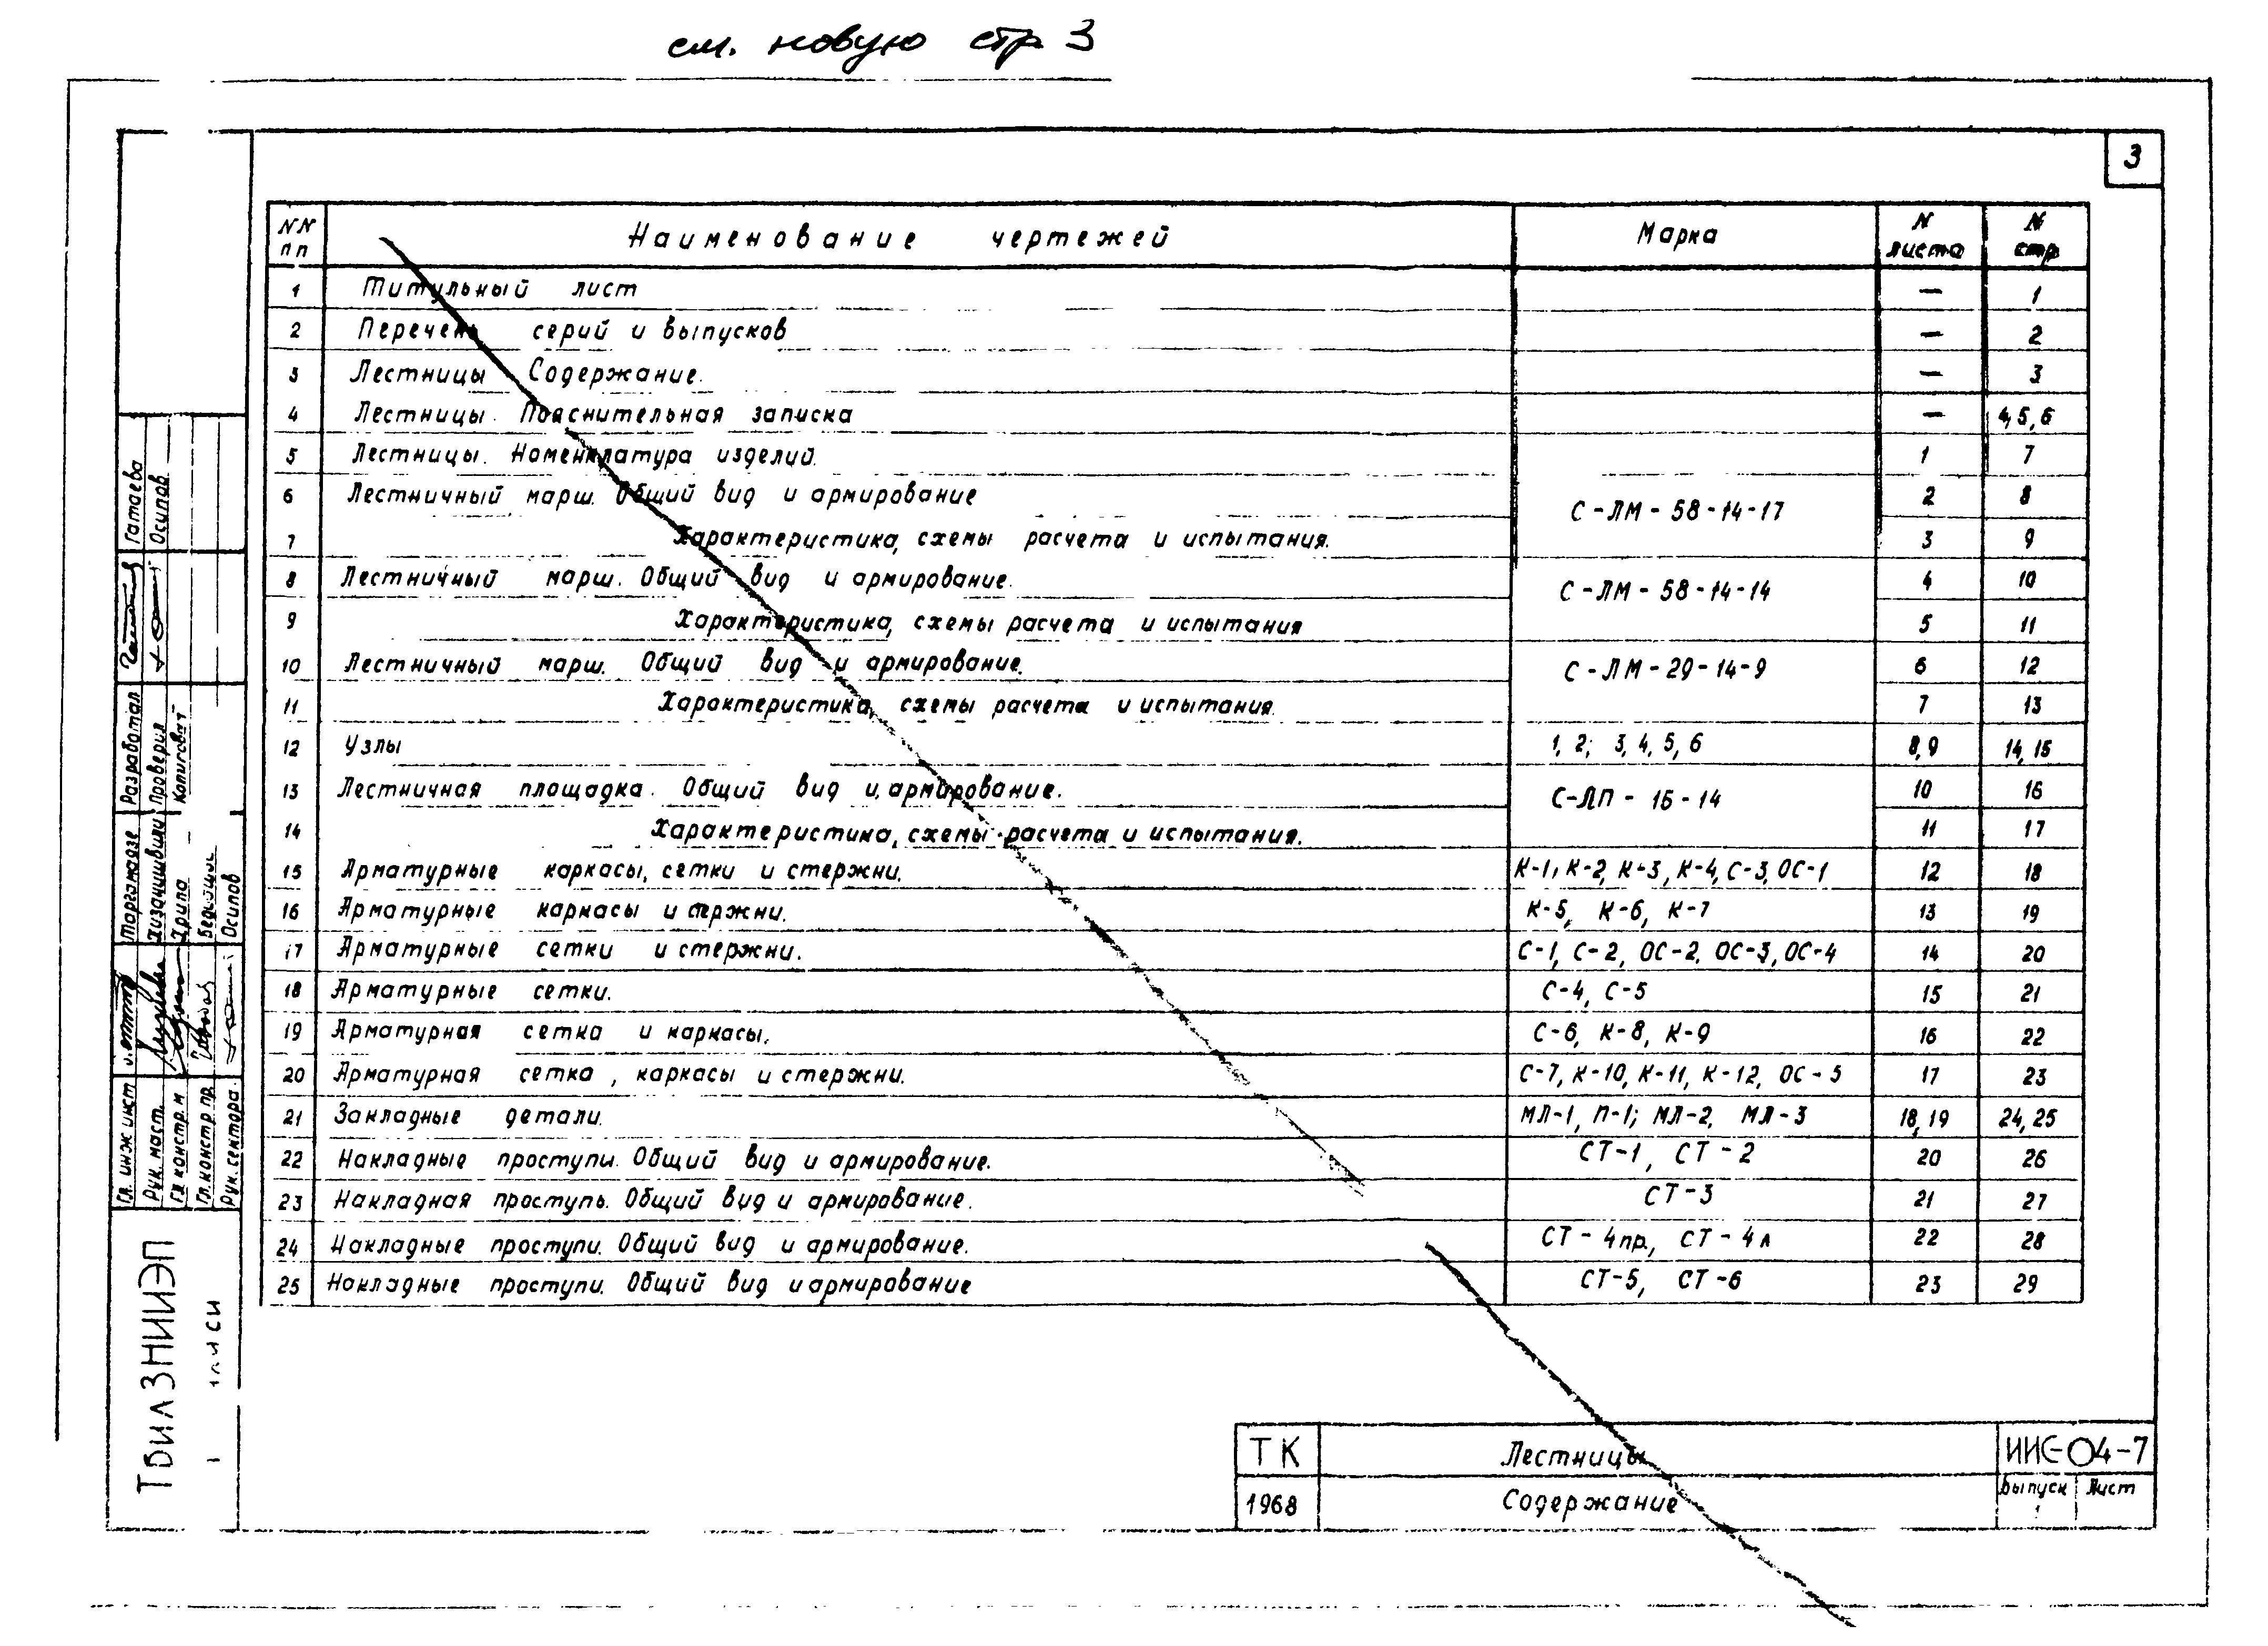 см. новую стр 3
3
NN пп Наименование чертежей Марка N листа N стр
1 Титульный лист — 1
2 Перечень серий и выпусков — 2
3 Лестницы Содержание. — 3
4 Лестницы. Пояснительная записка — 4,5,6
5 Лестницы. Номенклатура изделий. 1 7
6 Лестничный марш. Общий вид и армирование С-ЛМ-58-14-17 2 8
7 Характеристика, схемы расчета и испытания. 3 9
8 Лестничный марш. Общий вид и армирование. С-ЛМ-58-14-14 4 10
9 Характеристика, схемы расчета и испытания 5 11
10 Лестничный марш. Общий вид и армирование. С-ЛМ-29-14-9 6 12
11 Характеристика, схемы расчета и испытания. 7 13
12 Узлы 1, 2; 3, 4, 5, 6 8,9 14,15
13 Лестничная площадка. Общий вид и армирование. С-ЛП-16-14 10 16
14 Характеристика, схемы расчета и испытания. 11 17
15 Арматурные каркасы, сетки и стержни. К-1, К-2, К-3, К-4, С-3, ОС-1 12 18
16 Арматурные каркасы и стержни. К-5, К-6, К-7 13 19
17 Арматурные сетки и стержни. С-1, С-2, ОС-2, ОС-3, ОС-4 14 20
18 Арматурные сетки. С-4, С-5 15 21
19 Арматурная сетка и каркасы. С-6, К-8, К-9 16 22
20 Арматурная сетка, каркасы и стержни. С-7, К-10, К-11, К-12, ОС-5 17 23
21 Закладные детали. МЛ-1, П-1; МЛ-2, МЛ-3 18,19 24,25
22 Накладные проступи. Общий вид и армирование. СТ-1, СТ-2 20 26
23 Накладная проступь. Общий вид и армирование. СТ-3 21 27
24 Накладные проступи. Общий вид и армирование. СТ-4пр., СТ-4л 22 28
25 Накладные проступи. Общий вид и армирование СТ-5, СТ-6 23 29
ТК Лестницы ИИС-04-7
1968 Содержание выпуск 1 Лист
ТбилЗНИИЭП
Гл. инж инст
Рук. маст.
Гл. констр. м
Гл. констр пр.
Рук. сектора.
Хрипа
Осипов
Разработал Гатаева
Проверил Осипов
Копировал